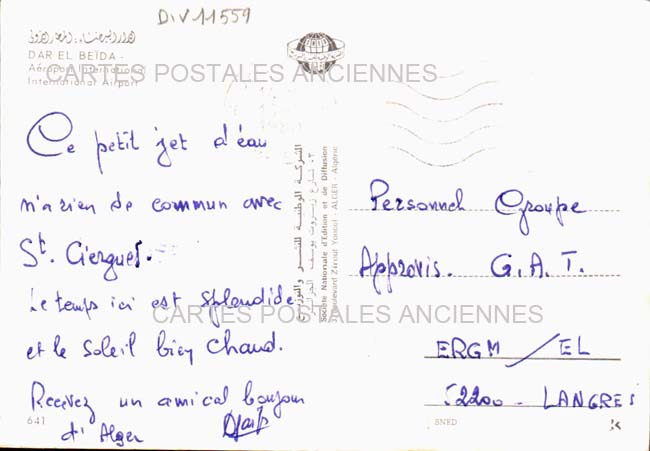 DIV 11559
الدار البيضاء - المطار الدولي
DAR EL BEÏDA -
Aéroport International
International Airport
CARTES POSTALES ANCIENNES
Ce petit jet d'eau
n'a rien de commun avec
St. Ciergues.
Le temps ici est splendide
et le soleil bien chaud.
Recevez un amical bonjour
d'Alger
641
الشركة الوطنية للنشر والتوزيع
٣، شارع زيروت يوسف الجزائر
Société Nationale d'Edition et de Diffusion
Boulevard Zirout Youcef - ALGER - Algérie
Personnel Groupe
Approvis. G.A.T.
CARTES POSTALES ANCIENNES
ERGM/EL
52200 - LANGRES
SNED